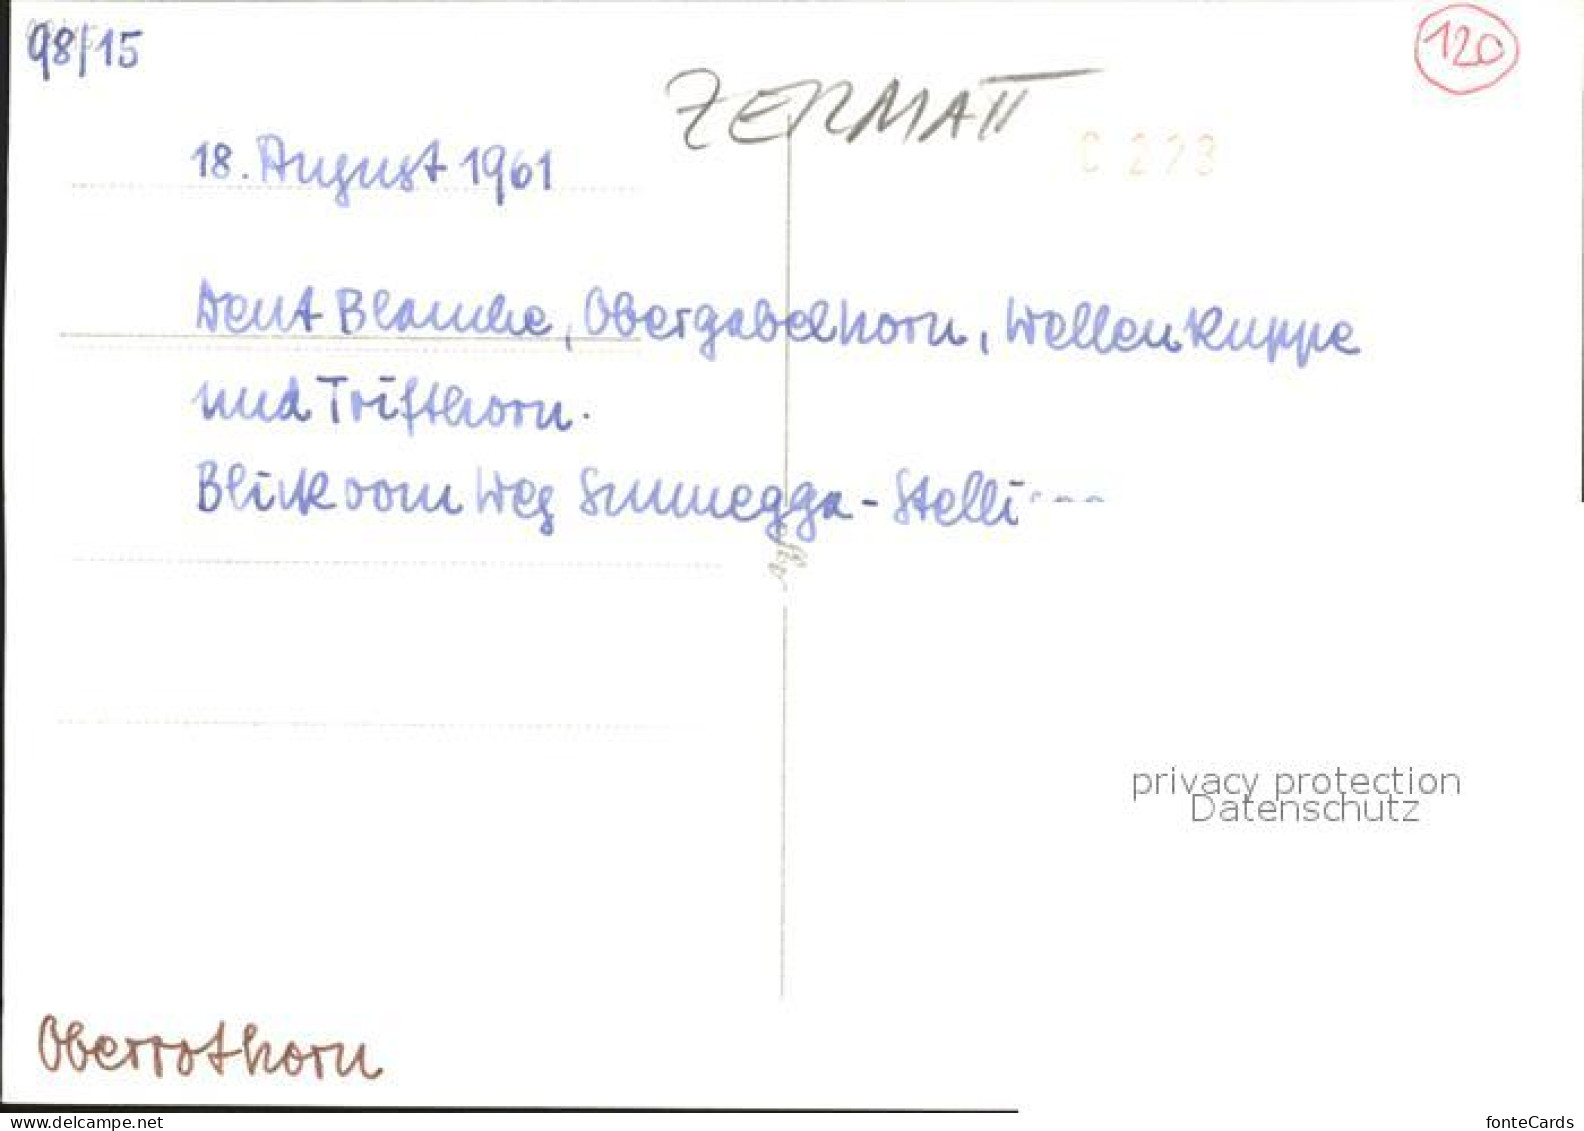 98/15
120
ZERMATT
C 273
18. August 1961
Dent Blanche, Obergabelhorn, Wellenkuppe
und Trifthorn.
Blick vom Weg Sunnegga - Stelli
Agfa
privacy protection
Datenschutz
Oberrothorn
www.delcampe.net
fonteCards